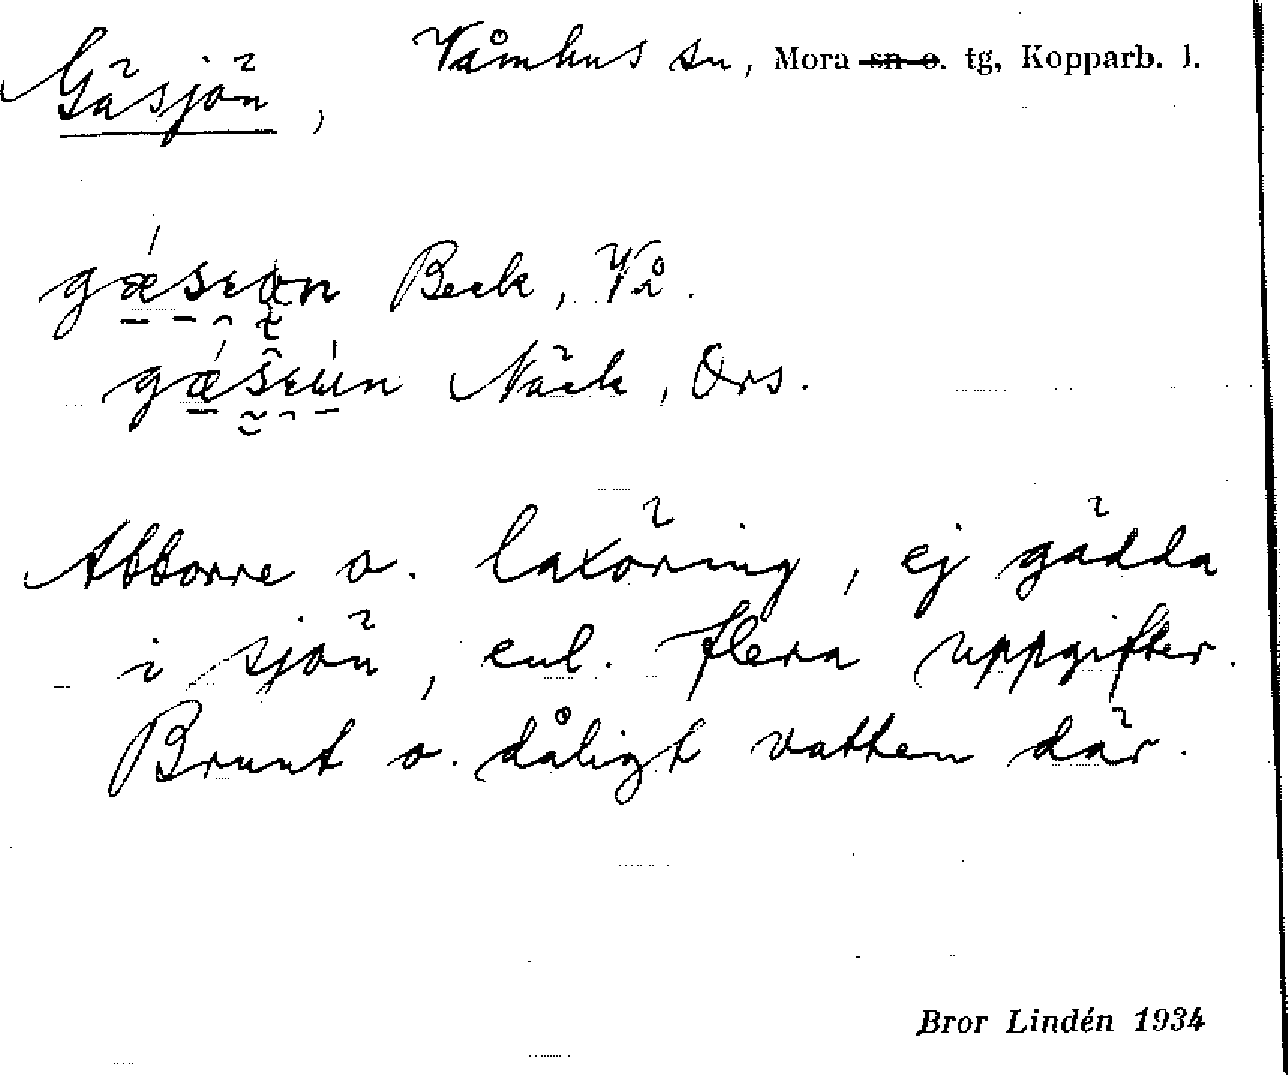 Gäsjön, Våmhus sn, Mora sn o. tg, Kopparb. l.
Beck, Vå.
Näck, Ors.
Abborre o. laxöring, ej gädda
i sjön, enl. flera uppgifter.
Brunt o. dåligt vatten där.
Bror Lindén 1934